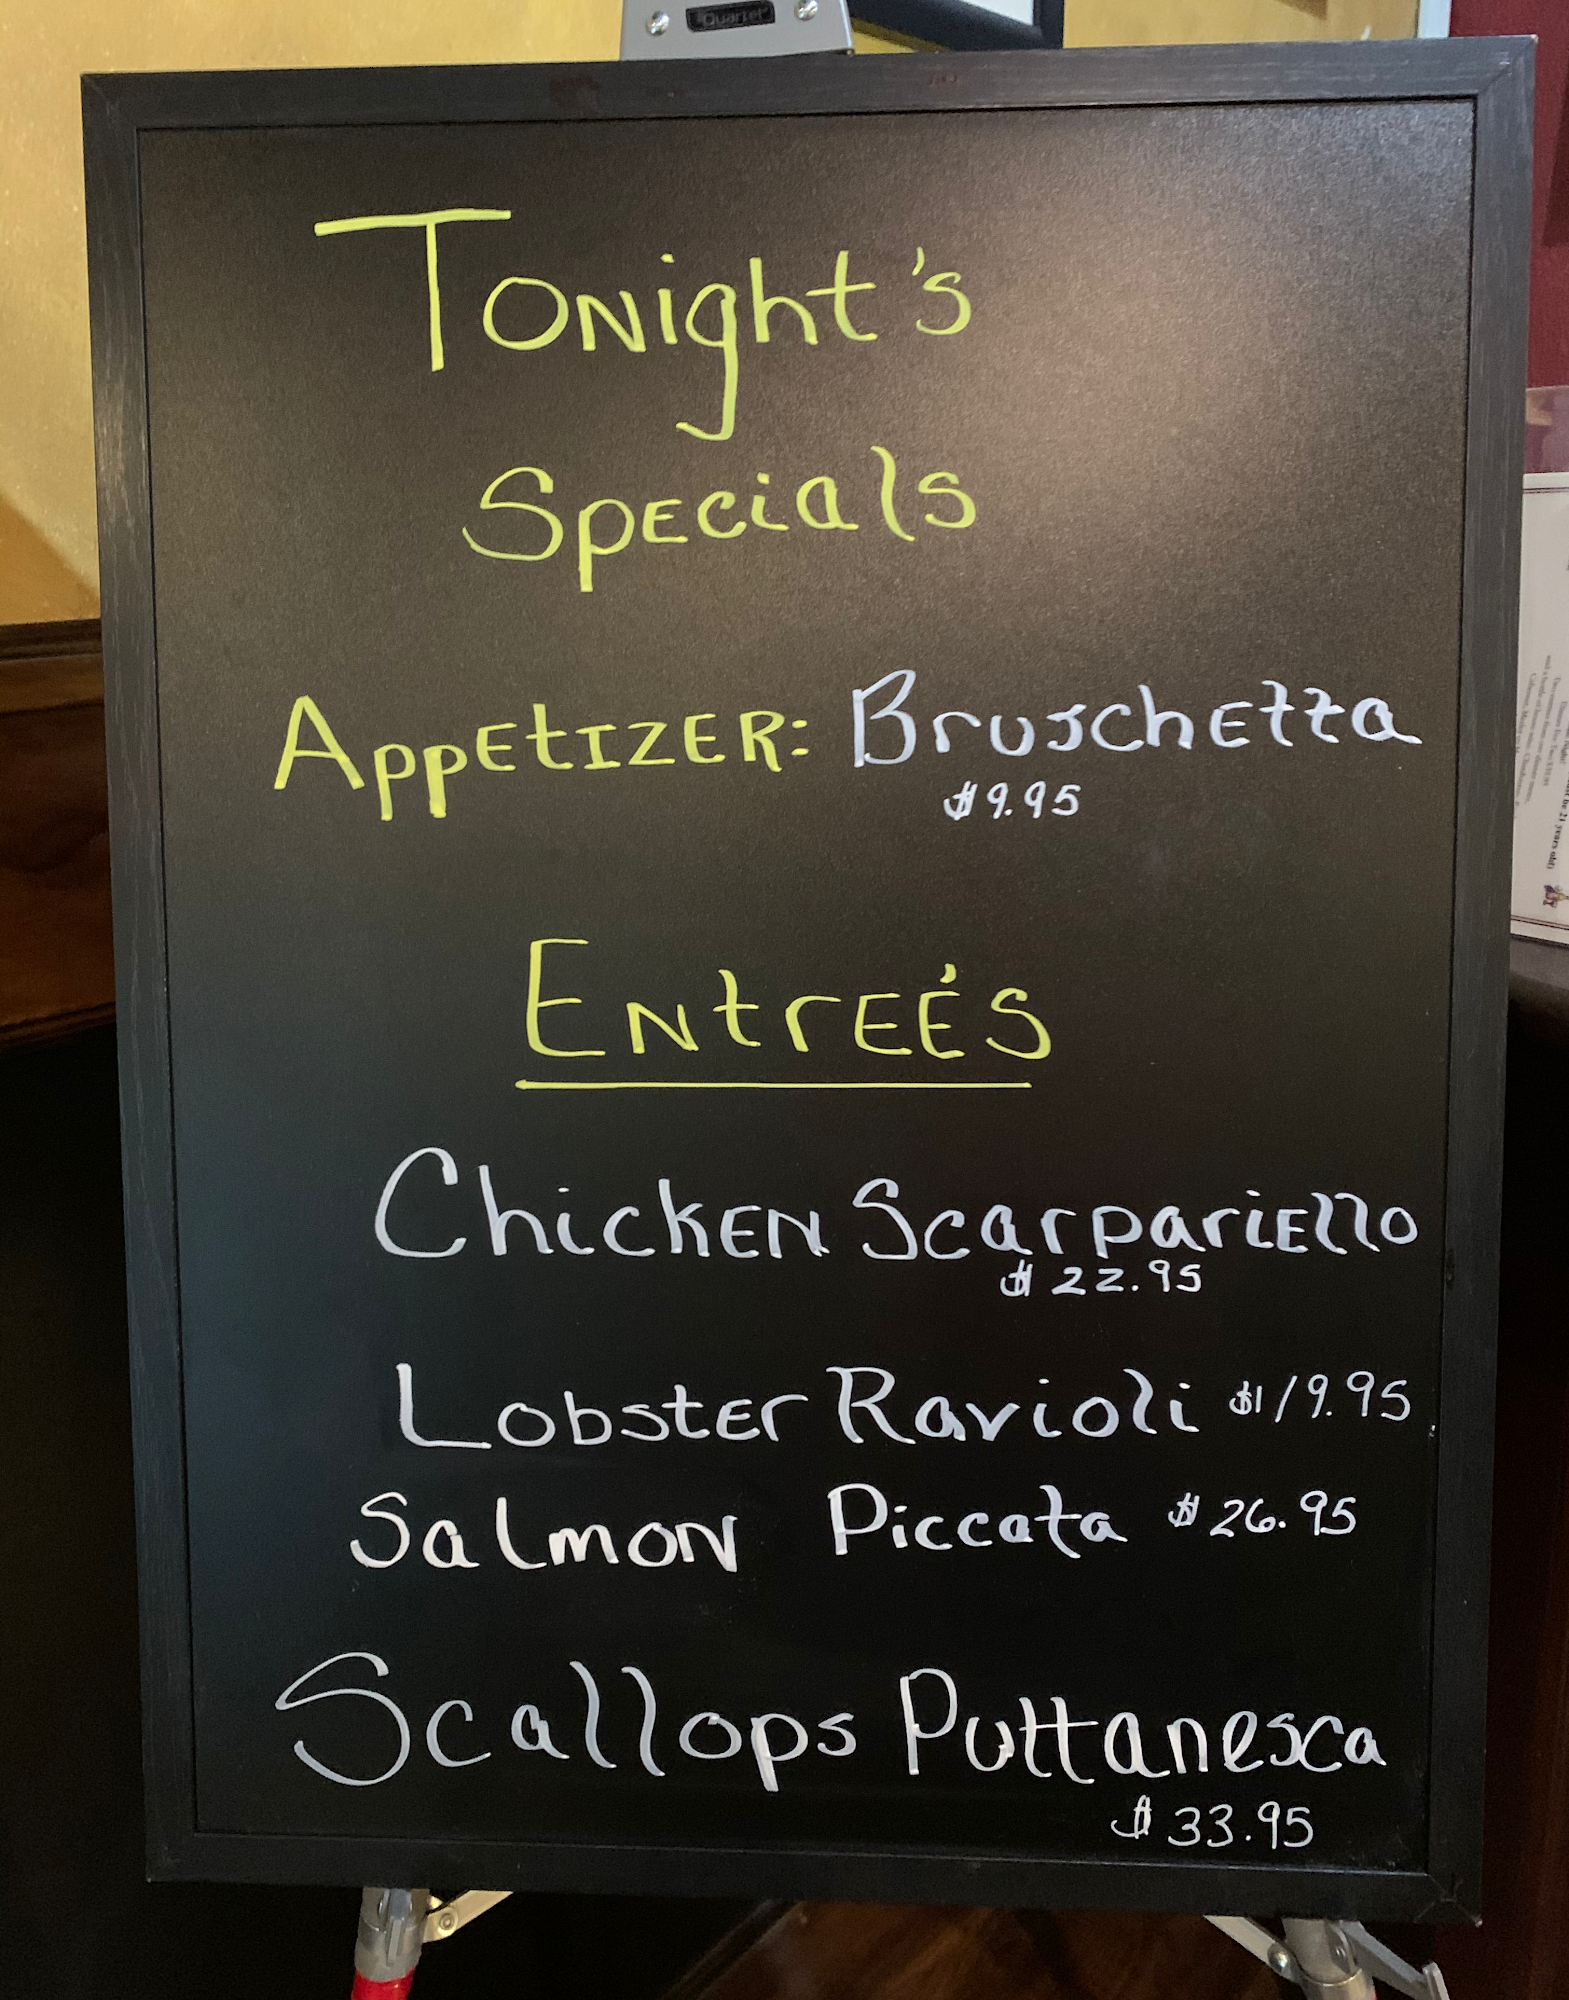 Quartet
Tonight's
Specials
Appetizer: Bruschetta
$9.95
Entreés
Chicken Scarpariello
$22.95
Lobster Ravioli $19.95
Salmon Piccata $26.95
Scallops Puttanesca
$33.95